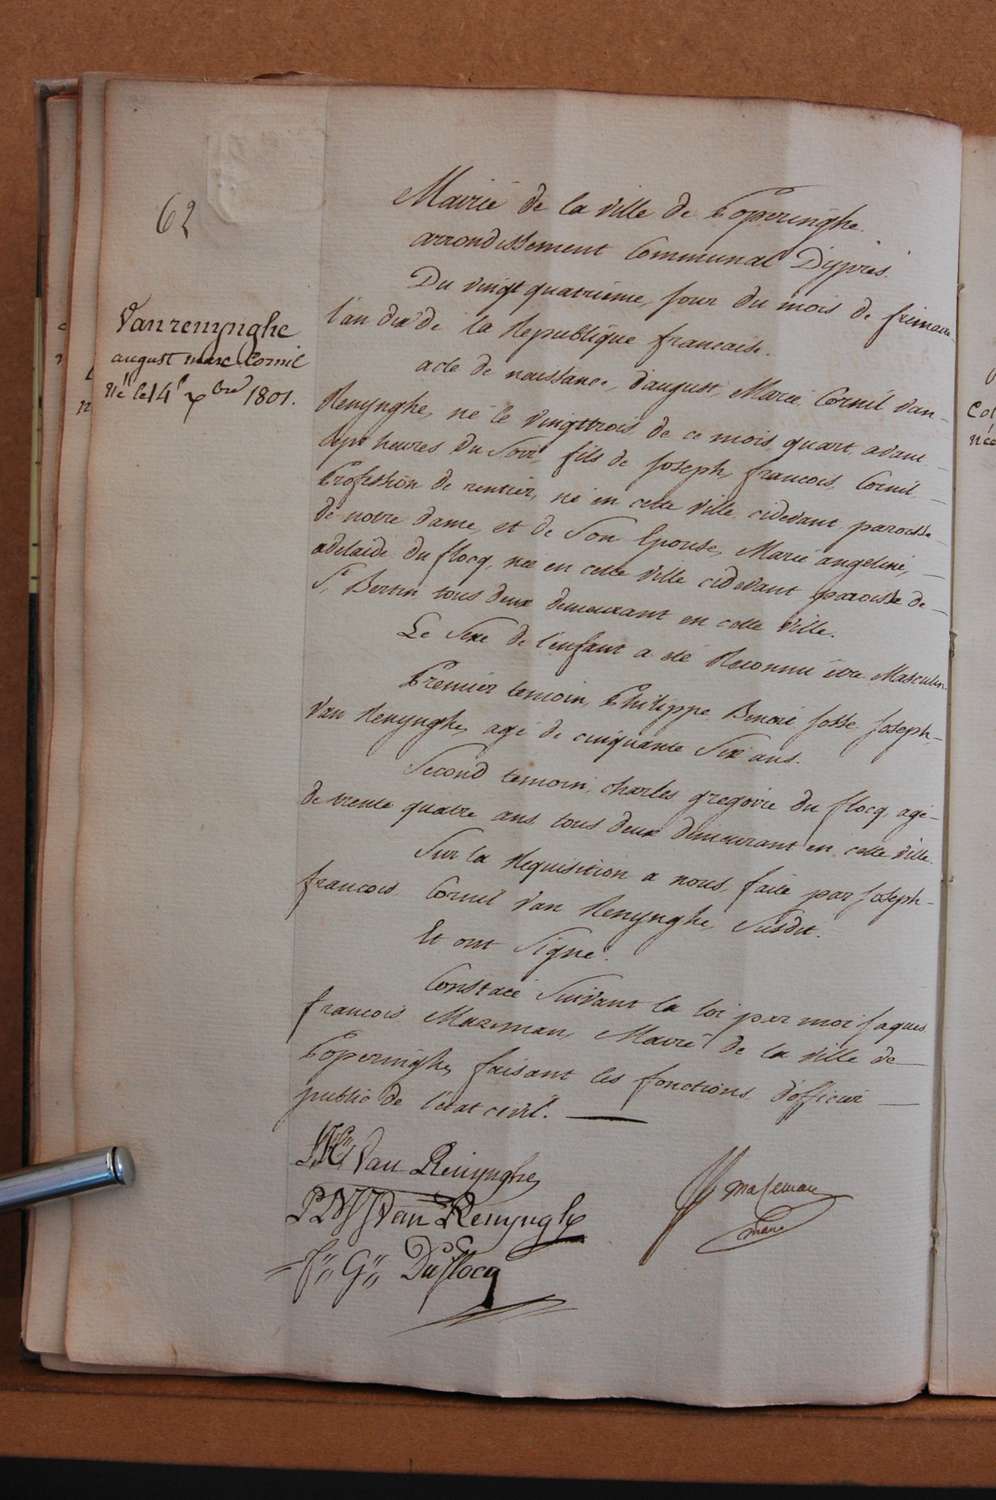 62
Vanrenynghe
august marc Cornil
né le 14 Xbre 1801.
Mairie de la ville de Poperinghe
arrondissement Communal D'ypres
Du vingt quatrieme jour du mois de frimaire
l'an dix de la Republique francaise.
acte de naissance, d'august, Marie, Cornil Van-
Renynghe, né le vingttrois de ce mois quart avant
sept heures du Soir, fils de Joseph, francois, Cornil
Profession de rentier, né en cette ville cidevant paroisse
de notre dame, et de Son Epouse, Marie angeline,
adelaide du flocq, née en cette ville cidevant paroisse de
St Bertin tous deux demeurant en cette ville.
Le Sexe de l'enfant a été Reconnu être Masculin
Premier temoin, Philippe Benoit Josse Joseph
Van Renynghe, agé de cinquante Six ans.
Second temoin, charles gregoire du flocq, agé
de trente quatre ans tous deux demeurant en cette ville
Sur la Requisition a nous faite par Joseph-
francois Cornil Van Renynghe, Susdit.
Et ont Signé.
Constaté Suivant la loi par moi Jaques
francois Mazeman, Maire de la ville de
Poperinghe, faisant les fonctions d'officier
public de l'état civil.
Van Renynghe
Van Renynghe
Mazeman
maire
G Duflocq
Col
née